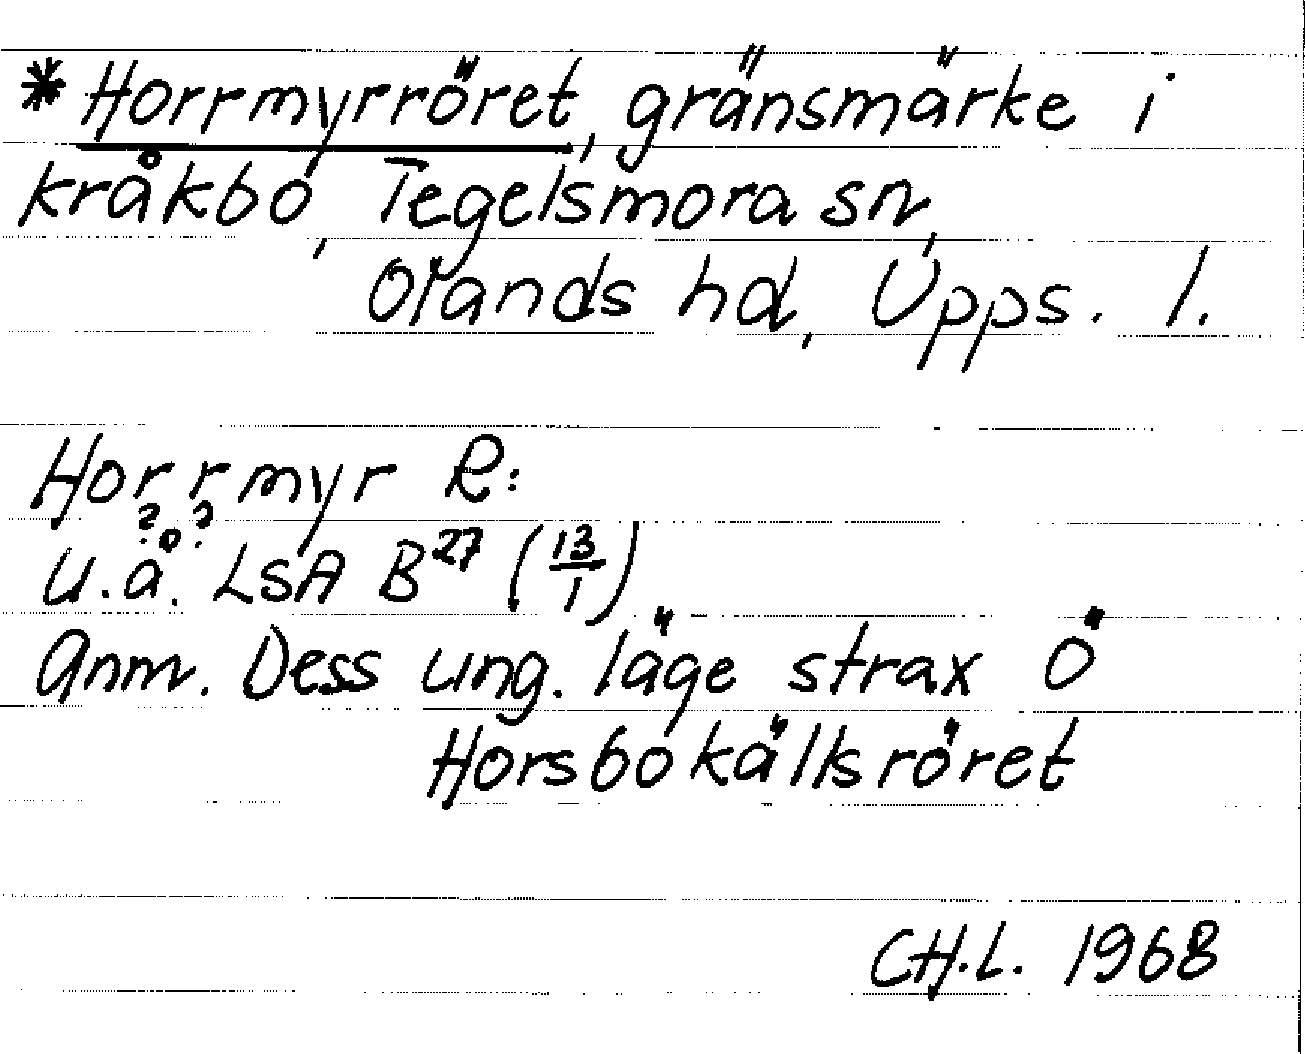 * Horrmyrröret, gränsmärke i
Kråkbo, Tegelsmora sn,
Olands hd, Upps. l.
Horrmyr R:
? ?
U.å. LSA B27 (13/1)
Anm. Dess ung. läge strax Ö
Horsbokällsröret
CH.L. 1968